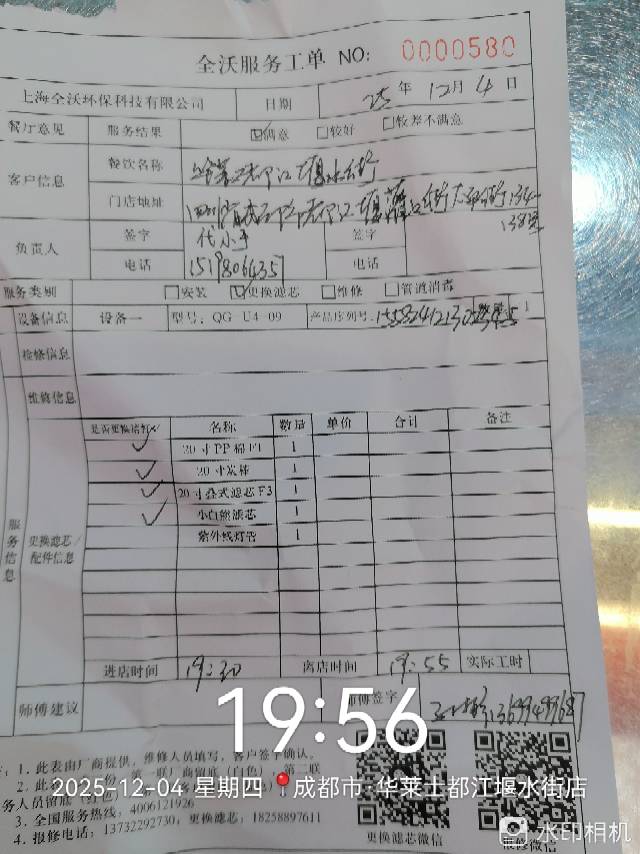 全沃服务工单 NO: 0000580
上海全沃环保科技有限公司 日期 25年12月4日
餐厅意见 服务结果 ☑满意 □较好 □较差不满意
客户信息 餐饮名称
门店地址
负责人 签字 代小平 签字
电话 电话
服务类别 □安装 ☑更换滤芯 □维修 □管道消毒
设备信息 设备一 型号: QG U4-09 产品序列号:
检修信息
维修信息
服务信息 更换滤芯/配件信息
名称 数量 单价 合计 备注
✓ 20寸PP棉F1 1
✓ 20寸炭棒 1
✓ 20寸叠式滤芯F3 1
✓ 小白熊滤芯 1
紫外线灯管 1
进店时间 19:30 离店时间 19:55 实际工时
师傅建议 师傅签字
19:56
1. 此表由厂商提供, 维修人员填写, 客户签字确认。
2025-12-04 星期四 成都市·华莱士都江堰水街店
3. 全国服务热线: 4006121926
4. 报修电话: 13732292730; 更换滤芯: 18258897611
更换滤芯微信 报修微信
水印相机